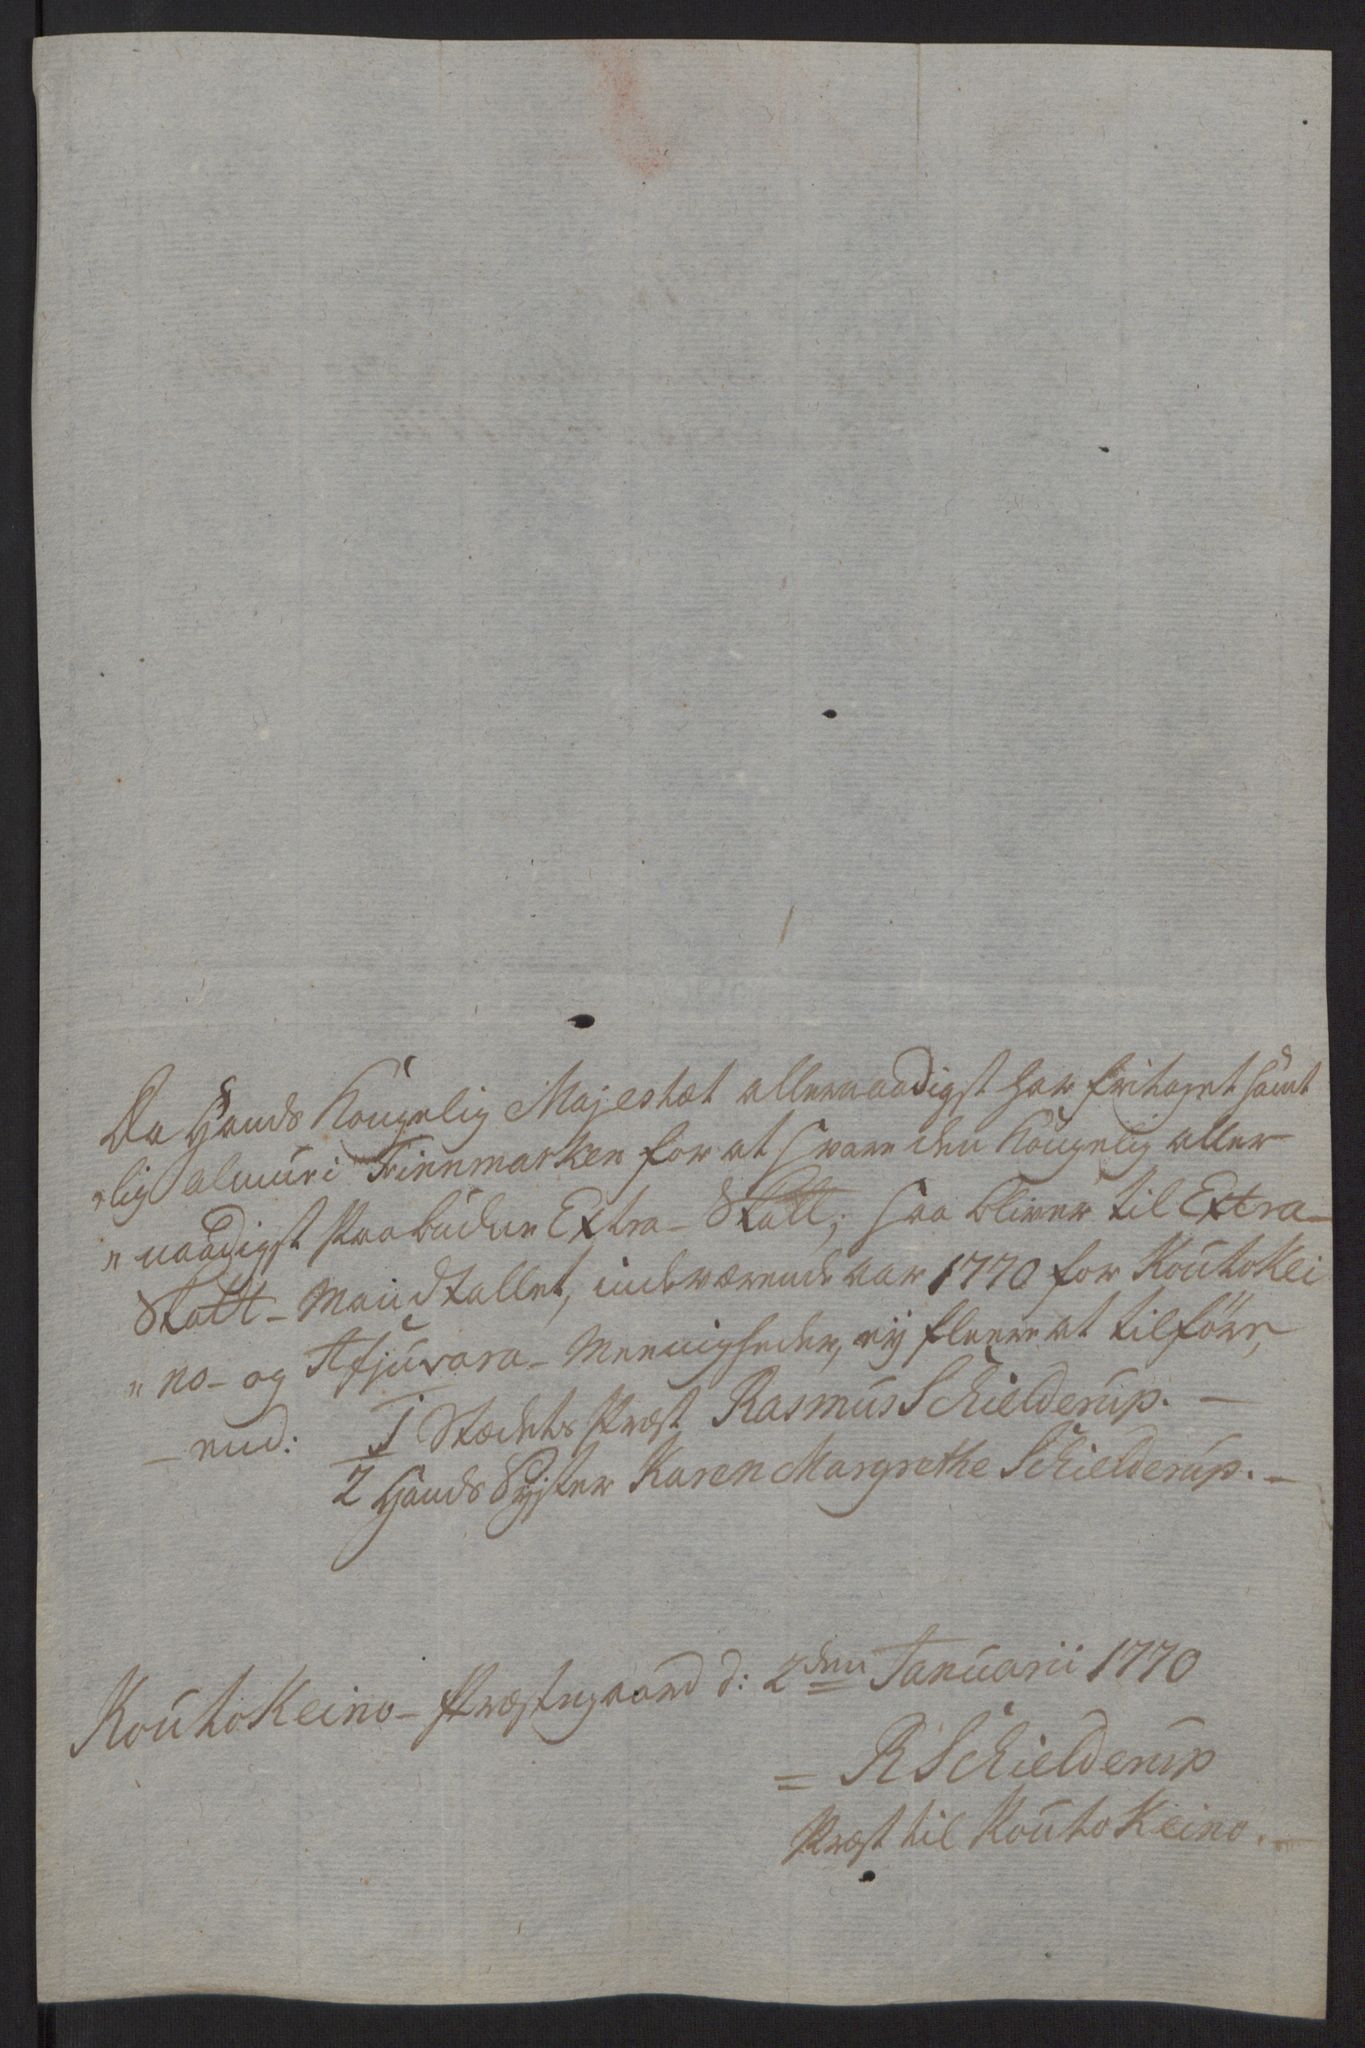 Da Hands Kongelig Majestæt allernaadigst har fritaget samt
"lig almue i Finnmarken for at svare den Kongelig aller
"naadigst Paabudne Extra-Skatt; saa bliver til Extra-
Skatt-Mandtallet, indeværende aar 1770 for Koutokei
"no- og Afjuvara-Menigheder, ej fleere at tilföre,
- end: 1 Stædets Præst Rasmus Schielderup. -
2 Hands Syster Karen Margrethe Schielderup. -
KoutoKeino- Præstegaard d: 2den Januarii 1770
= RSchielderup
Præst til KoutoKeino.